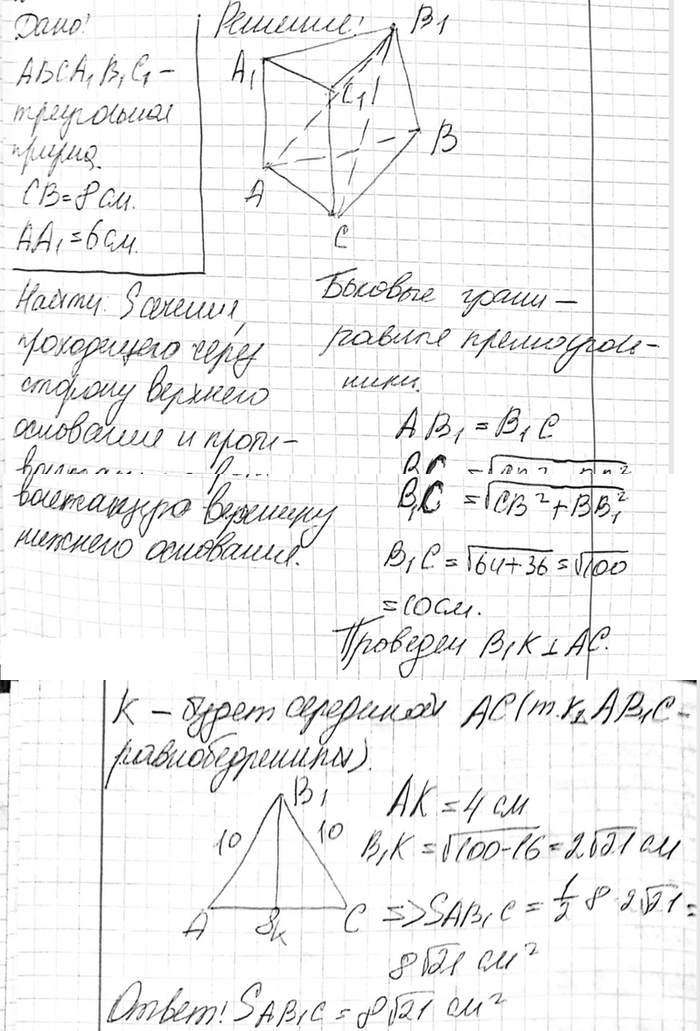 Дано!
ABCA₁B₁C₁ –
треугольная
призма.
CB = 8 см.
AA₁ = 6 см.
Найти: S сечения,
проходящего через
сторону верхнего
основания и проти-
волежащую вершину
нижнего основания.
Решение!
A₁
B₁
C₁
A
B
C
Боковые грани –
равные прямоуголь-
ники.
AB₁ = B₁C
B₁C = √CB² + BB₁²
B₁C = √64+36 = √100
= 10 см.
Проведем B₁K ⊥ AC.
K – будет серединой AC (т.к. AB₁C –
равнобедренный).
B₁
10
10
A
8
K
C
AK = 4 см
B₁K = √100-16 = 2√21 см
=> S AB₁C = 1/2 8 · 2√21 =
8√21 см²
Ответ! S AB₁C = 8√21 см²